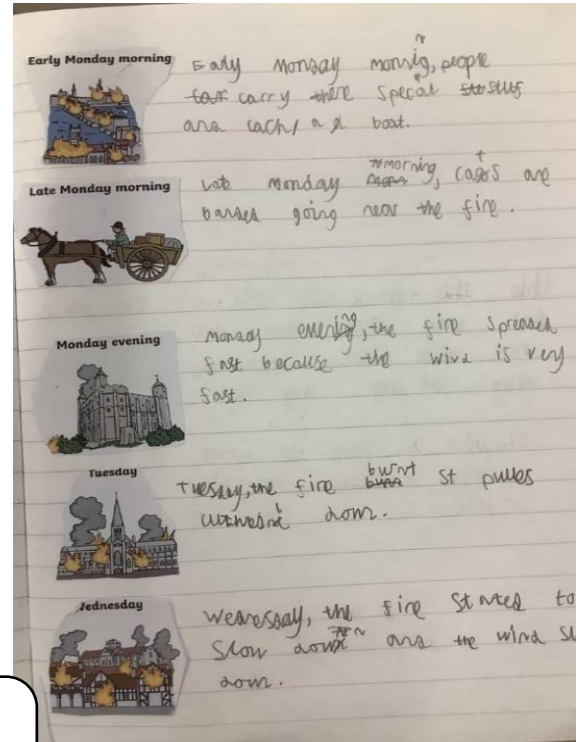 Early Monday morning
Early Monday morning, people
carry there specal stuf
and cach a boat.
Late Monday morning
Late monday morning, cats are
banded going near the fire.
Monday evening
Monday evening, the fire spreaded
fast because the wind is very
fast.
Tuesday
Tuesday, the fire burnt St
down.
Wednesday
Wednesday, the fire started to
slow down and the wind
down.